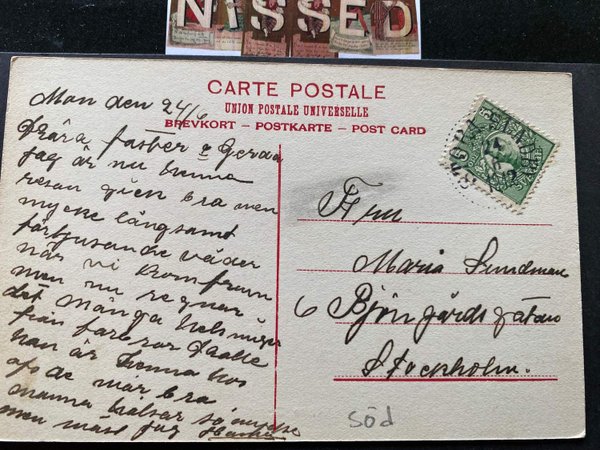 NISSED
CARTE POSTALE
UNION POSTALE UNIVERSELLE
BREVKORT – POSTKARTE – POST CARD
Mon den 24/6
Kära faster o Gerda
Jag är nu hemma
resan gick bra men
mycke långsamt
förtjusande väder
när vi kom fram
men nu regnar
det Många helsningar
från farbror
han är hemma hos
oss de mår bra
mamma hälsar så mycke
men mäst jag
Fru
Maria Sundman
6 Björngårdsgatan
Stockholm.
söd